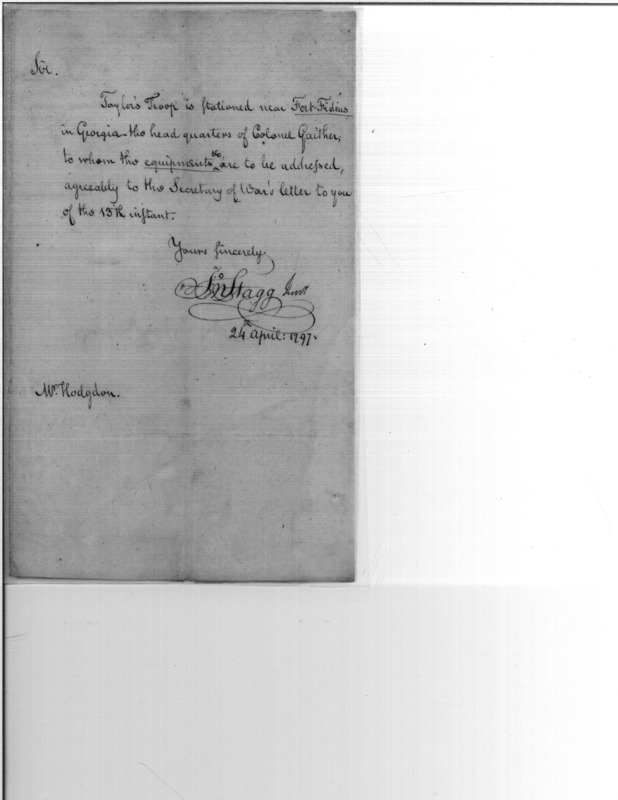 Sir.
Taylor's Troop is stationed near Fort Fidius
in Georgia - the head quarters of Colonel Gaither,
to whom the equipments &c, are to be addressed,
agreeably to the Secretary of War's letter to you
of the 13th instant.
Yours sincerely
Jno Stagg Junr
24th April: 1797.
Mr. Hodgdon.